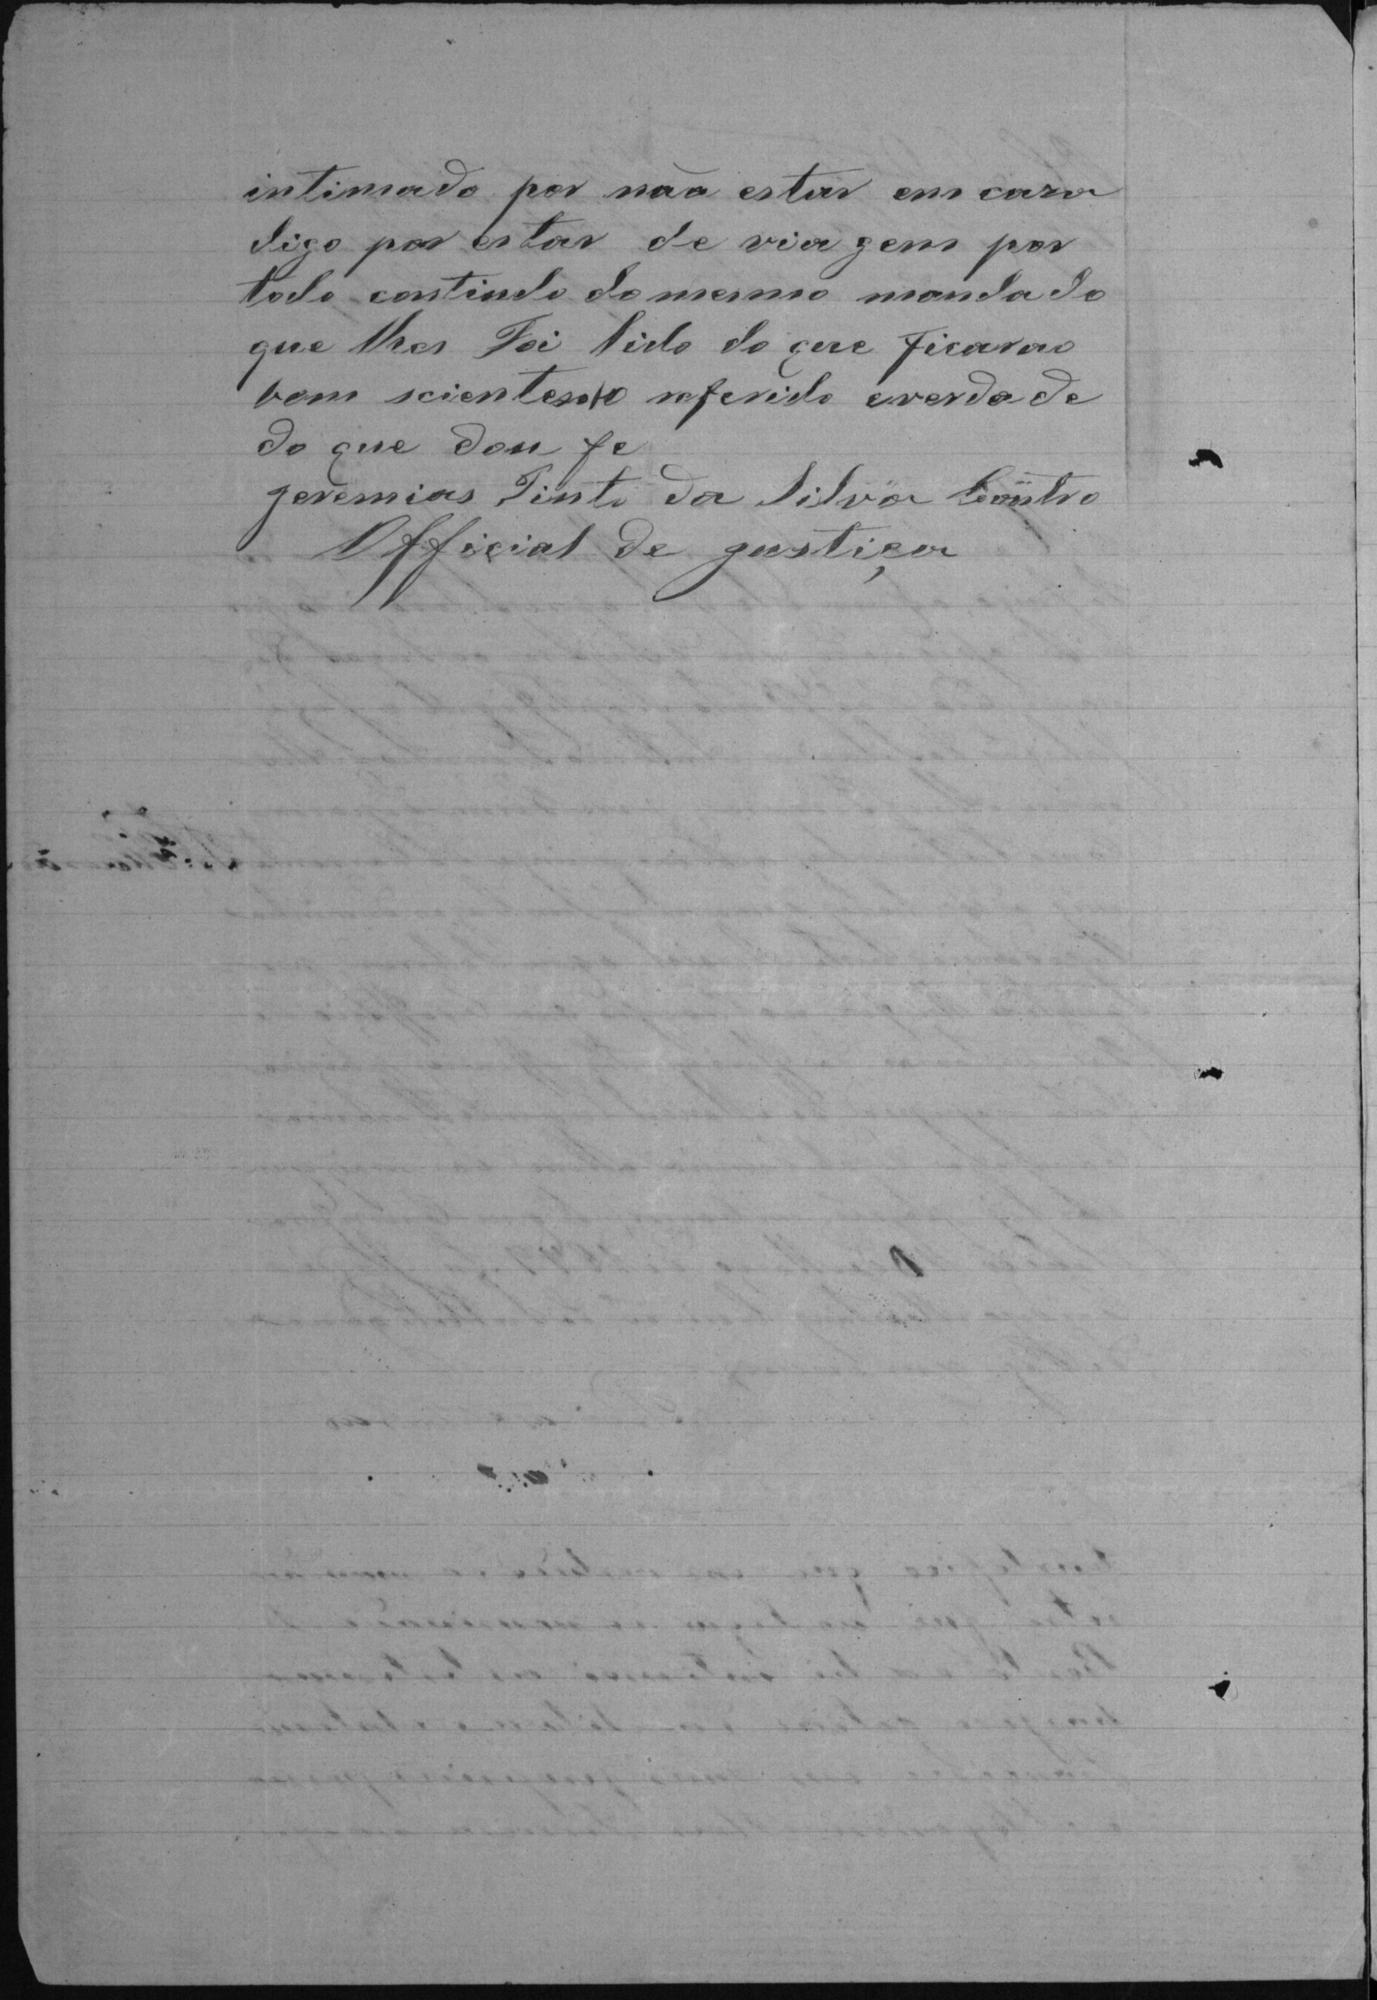 intimado por não estar em caza
digo por estar de viagem por
todo contiudo do mesmo mandado
que lhes Foi lido do que ficarao
bem scientes o referido e verdade
do que dou fe
jeremias Pinto da Silva
Official de justiça